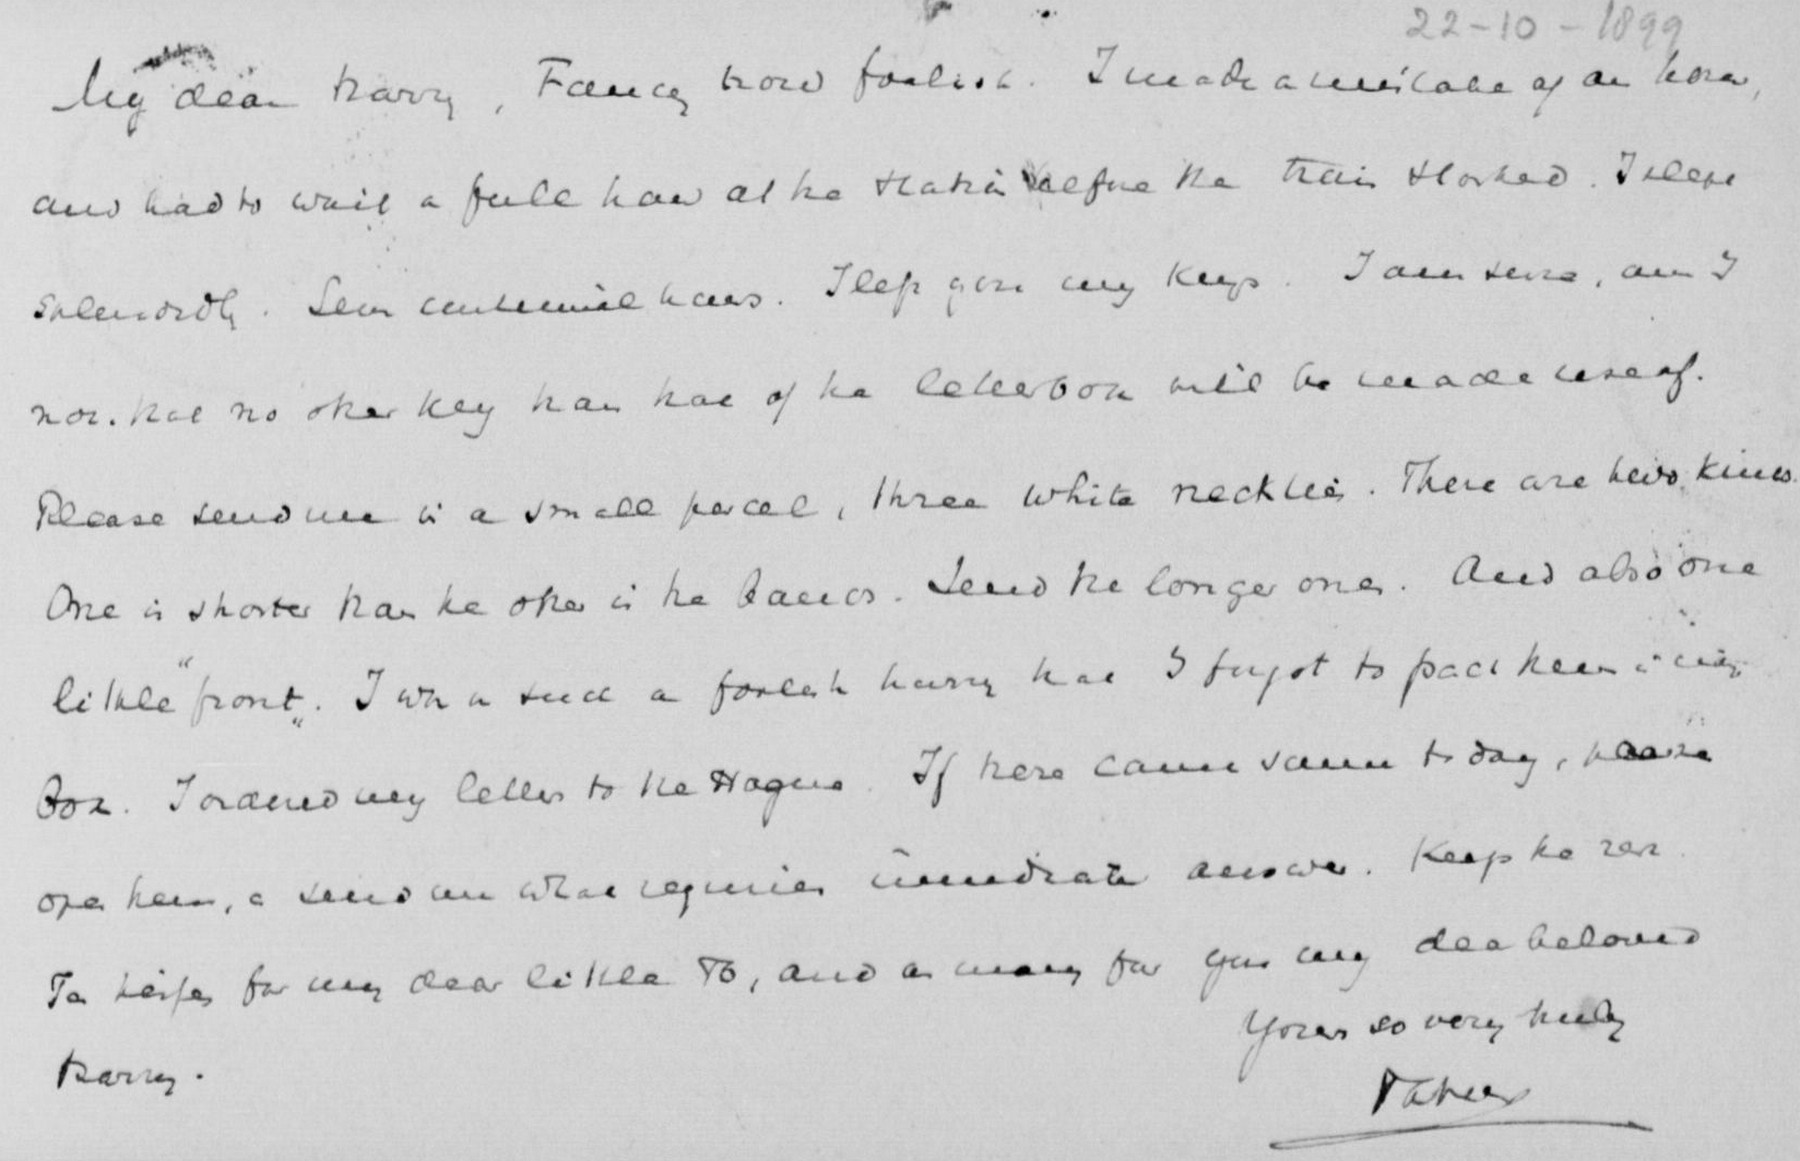 22-10-1899
My dear Harry, Fancy how foolish. I made a mistake of an hour,
and had to wait a full hour at the station before the train started. I slept
splendidly. Seven continual hours. I left you my keys. I am sure, am I
not. that no other key than that of the letterbox will be made use of.
Please send me in a small parcel, three white neckties. There are two kinds.
One is shorter than the other in the bands. Send the longer ones. And also one
little "front". I was in such a foolish hurry that I forgot to pack them in my
box. I ordered my letters to the Hague. If there came some to day, please
open them, a send me what requires immediate answer. Keep the rest.
Ten kisses for my dear little To, and as many for you my dear beloved
Harry.
Yours so very truly
Father